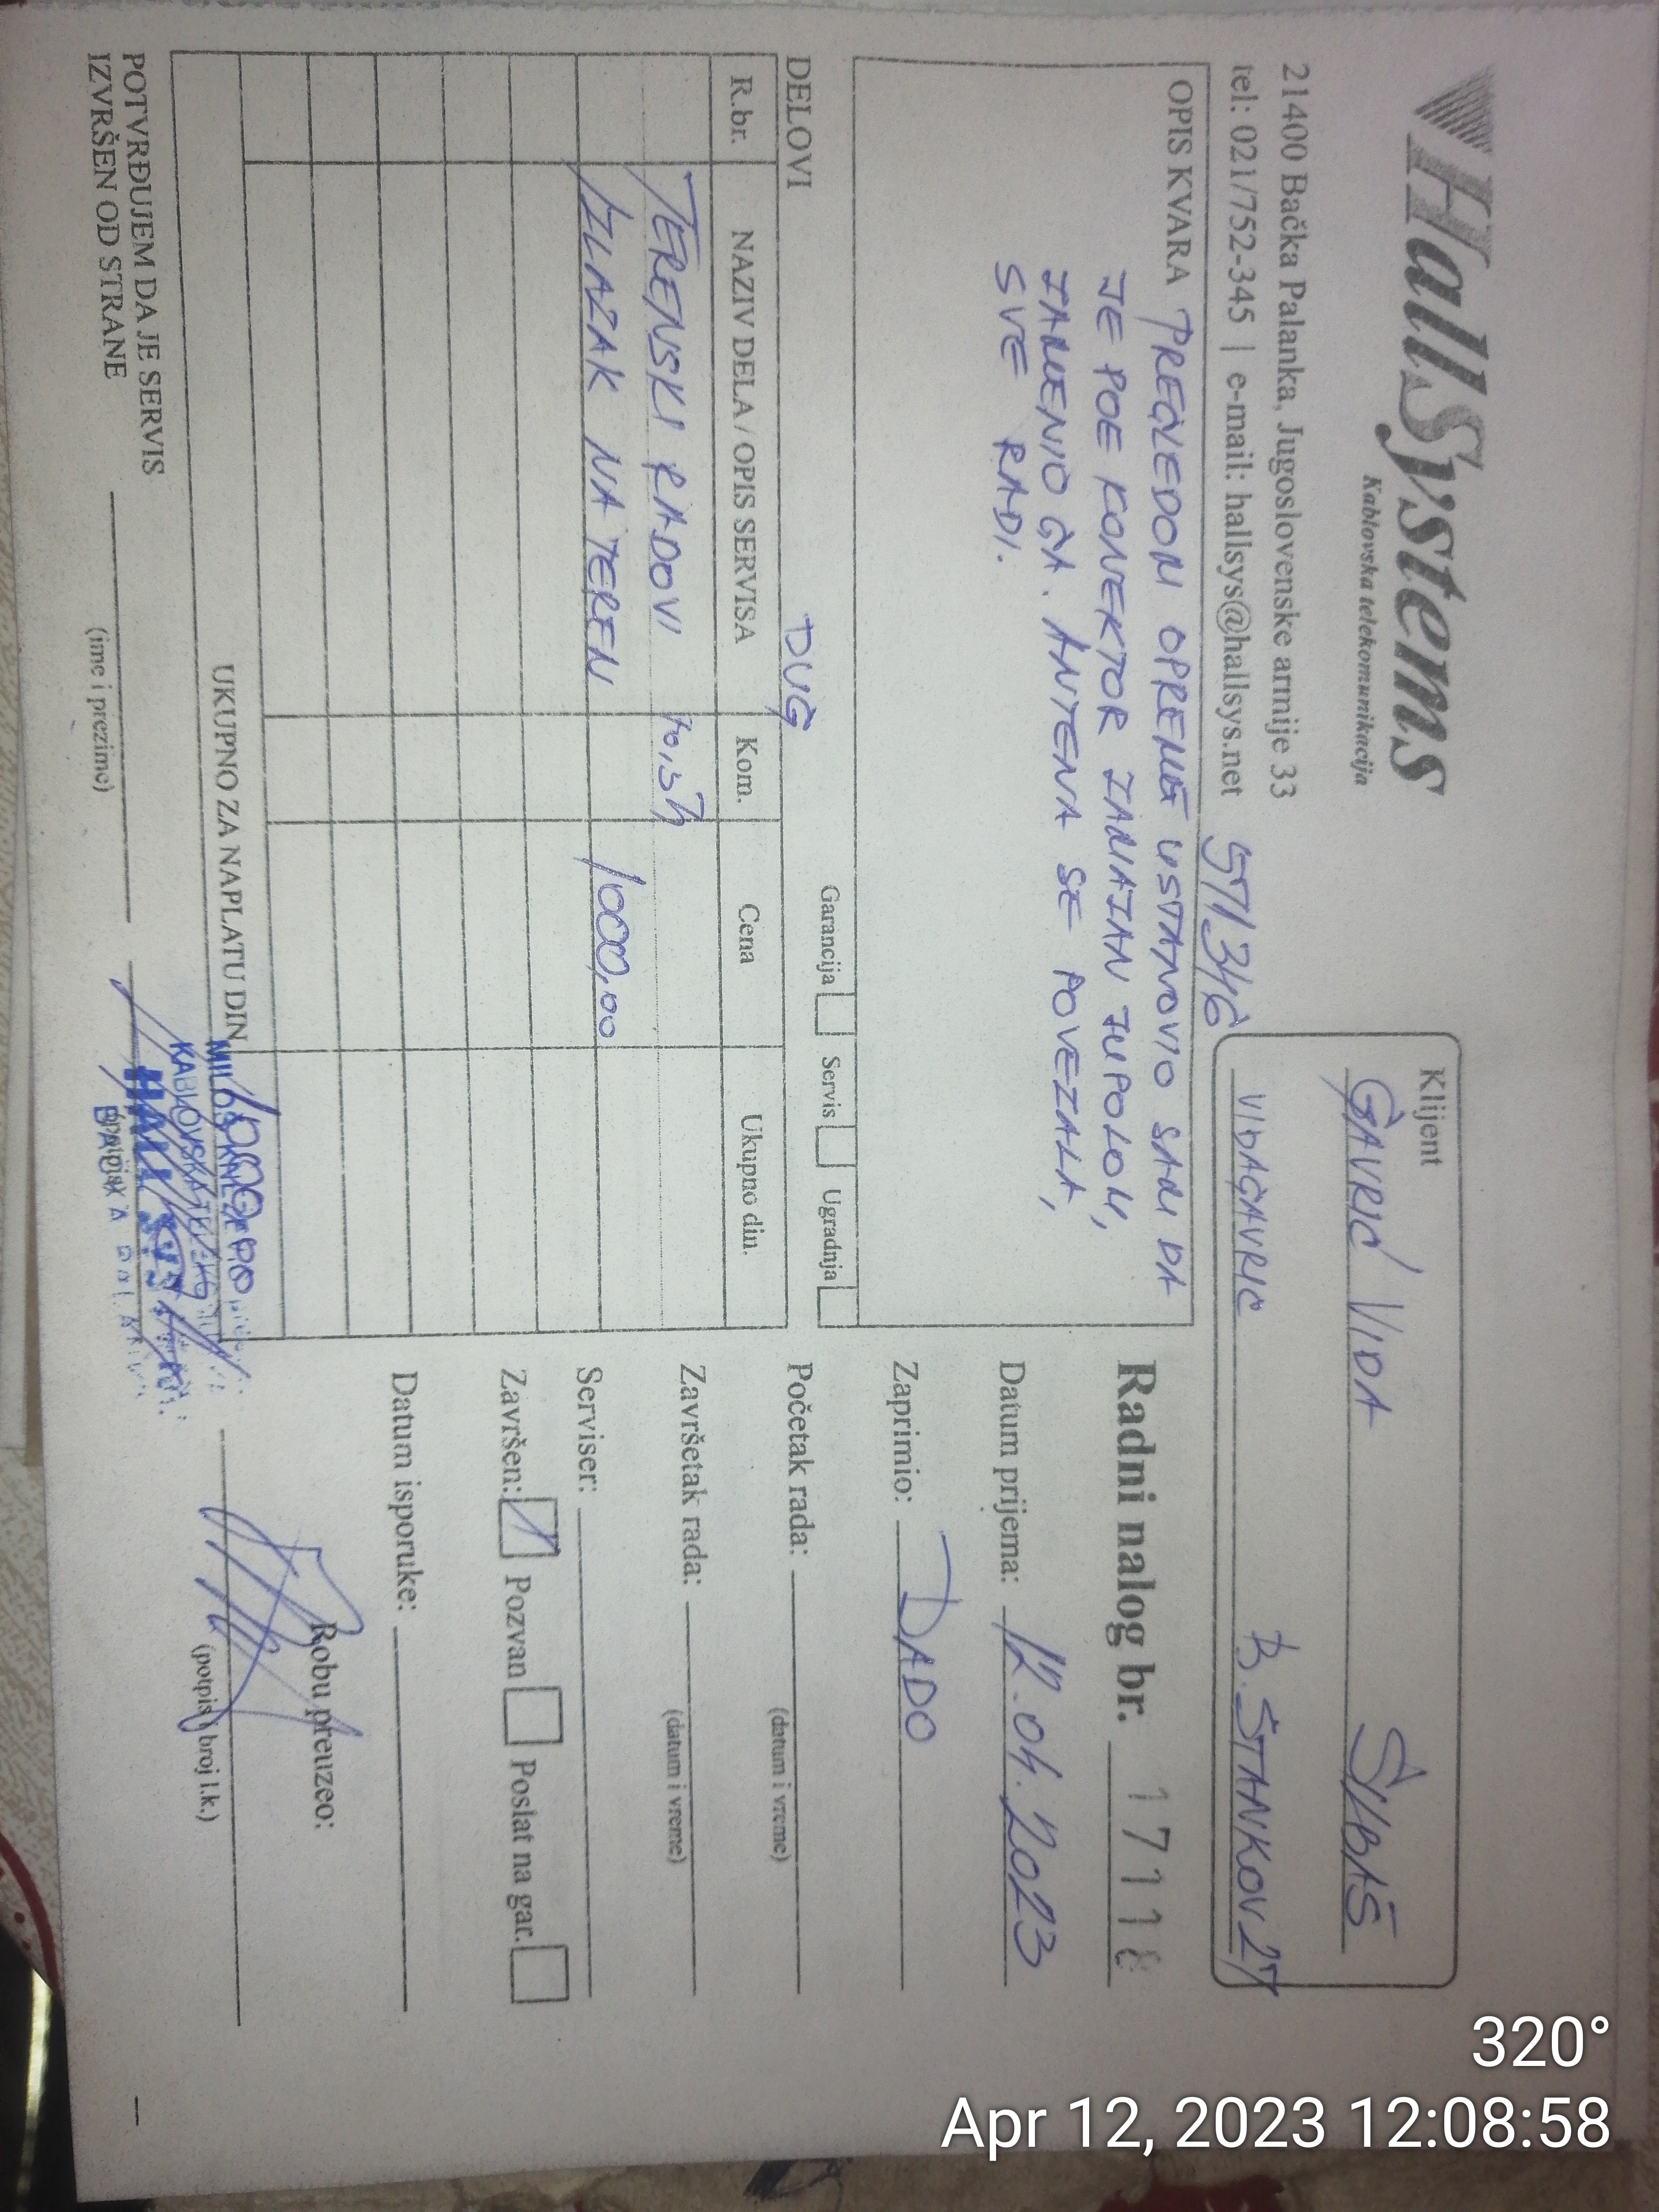 HallSystems
Kablovska telekomunikacija
21400 Bačka Palanka, Jugoslovenske armije 33
tel: 021/752-345 | e-mail: hallsys@hallsys.net
571346
Klijent
GAVRIĆ VIDA ŠILBAŠ
VIDAGAVRIC B. STANKOV 27
OPIS KVARA PREGLEDOM OPREME USTANOVIO SAM DA
JE POE KONEKTOR ZAMAZAN ZUPOLOM,
ZAMENIO GA. ANTENA SE POVEZALA,
SVE RADI.
Garancija Servis Ugradnja
DELOVI DUG
R.br. NAZIV DELA / OPIS SERVISA Kom. Cena Ukupno din.
TERENSKI RADOVI
IZLAZAK NA TEREN 1000,00
UKUPNO ZA NAPLATU DIN
POTVRĐUJEM DA JE SERVIS
IZVRŠEN OD STRANE
(ime i prezime)
Radni nalog br. 17118
Datum prijema: 12.04.2023
Zaprimio: DADO
Početak rada:
(datum i vreme)
Završetak rada:
(datum i vreme)
Serviser:
Završen: Pozvan Poslat na gar.
Datum isporuke:
Robu preuzeo:
(potpis i broj l.k.)
320°
Apr 12, 2023 12:08:58